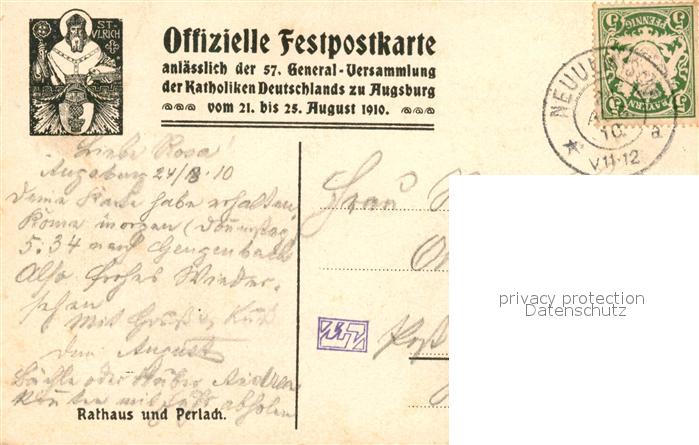 ST.
ULRICH
Offizielle Festpostkarte
anlässlich der 57. General-Versammlung
der Katholiken Deutschlands zu Augsburg
vom 21. bis 25. August 1910.
5 PFENNIG 5
BAYERN
NEUU
10
V 11-12
Liebe Rosa!
Augsburg 24/8.10
Deine Karte habe erhalten,
Komme morgen (Donnerstag
5.34 nach Gengenbach
Also frohes Wieder-
sehen
Mit Gruß & Kuß
Dein August
oder Huber
abholen
Rathaus und Perlach.
Frau
Post
privacy protection
Datenschutz